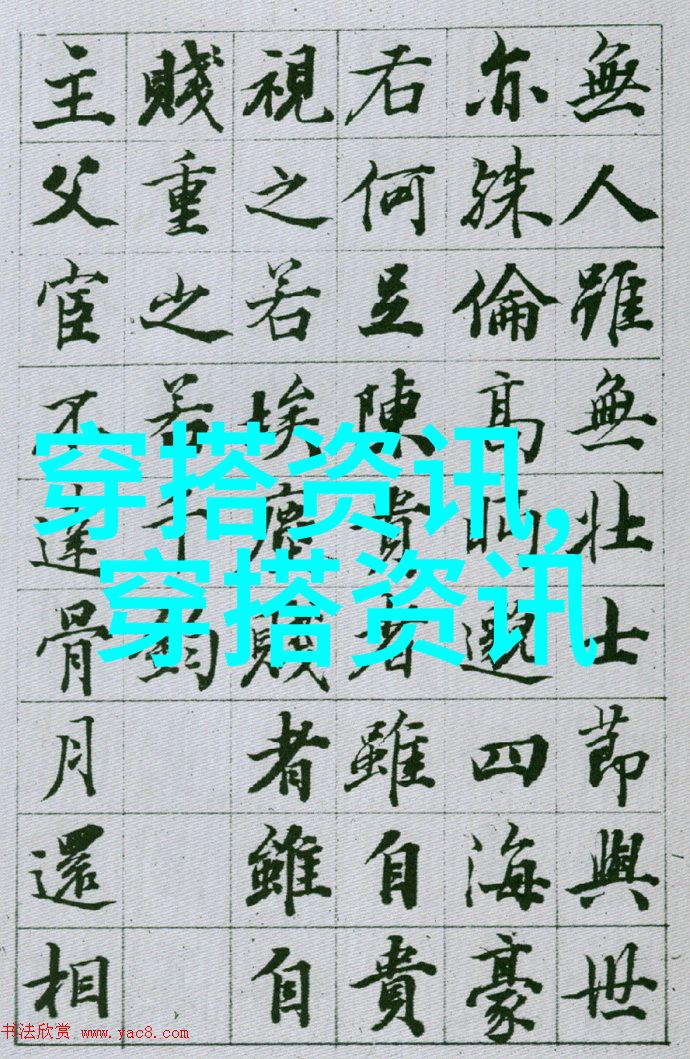 無人雖無壯士節與世
亦殊倫高眄邈四海豪
右何足陳貴者雖自貴
視之若埃塵賤者雖自
賤重之若千鈞
主父宦不達骨月還相
穿搭资讯,
穿搭资讯
书法欣赏 www.yac8.com